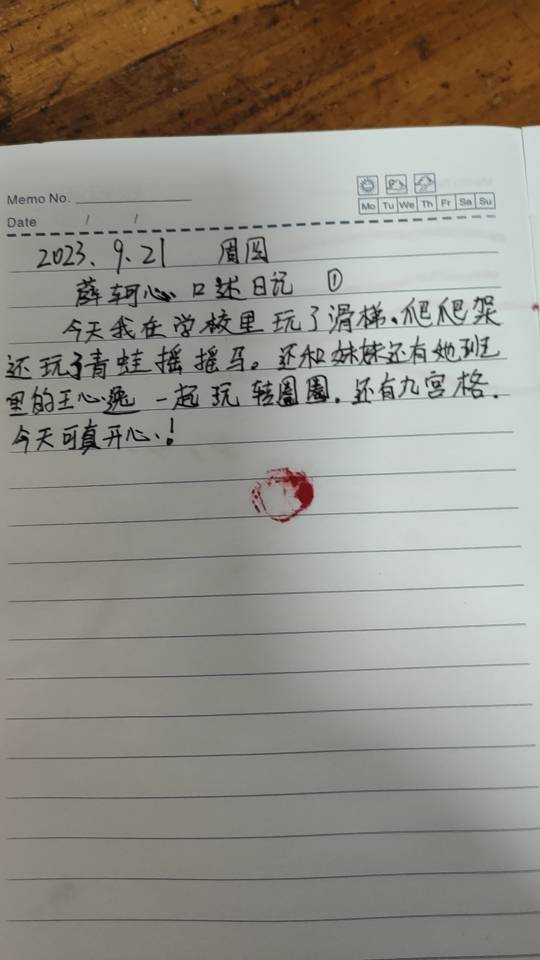 Memo No.
Date / /
Mo Tu We Th Fr Sa Su
2023.9.21 周四
薛轲心 口述日记 ①
今天我在学校里玩了滑梯、爬爬架
还玩了青蛙摇摇马。还和妹妹还有她班
里的王心逸一起玩转圈圈.还有九宫格.
今天可真开心!